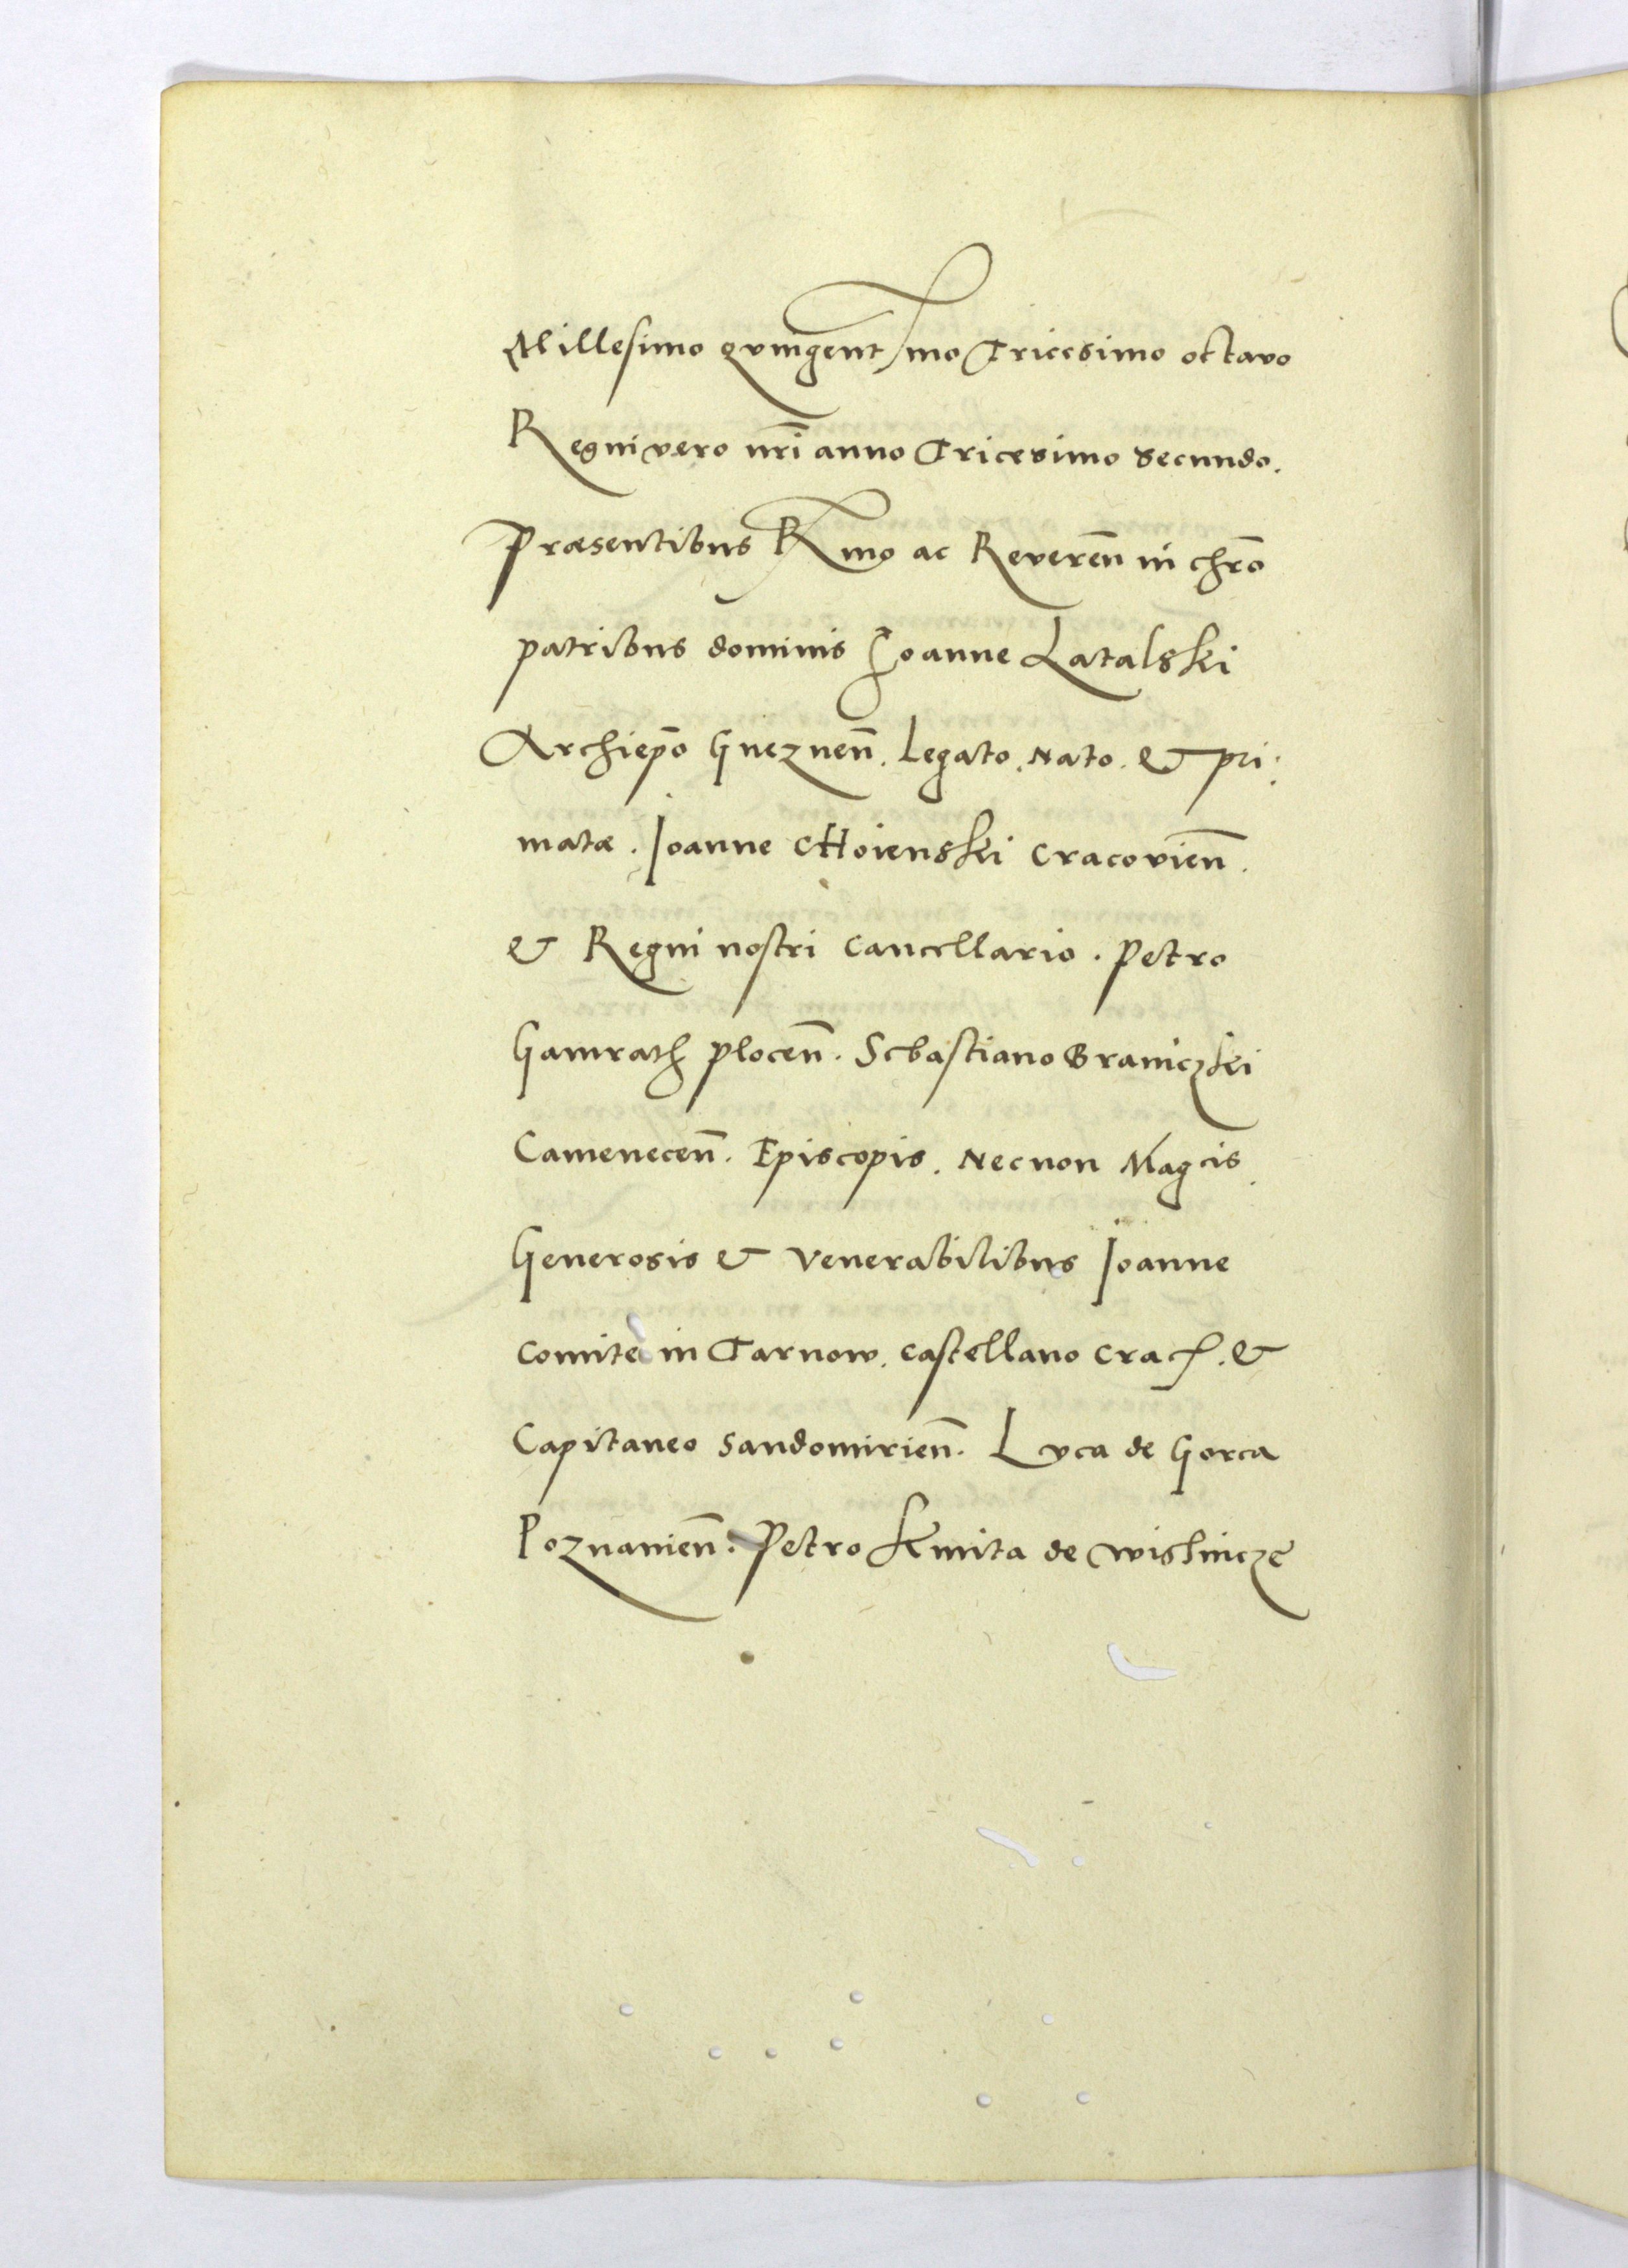 Millesimo qvingentſmo Tricesimo octavo
Regni vero nr̄i anno Tricesimo secundo.
Præsentibus Rmo ac Reveren̄ in chr̄o
patribus dominis Joanne Latalski
Archiepō Gneznen̄. Legato. Nato. & pri:
matæ. Joanne CHoienski Cracovien̄.
& Regni nostri Cancellario. Petro
Gamrath plocen̄. Sebastiano Braniczki
Camenecen̄. Episcopis. Necnon Magcis.
Generosis & Venerabilibus Joanne
Comite in Tarnow. Castellano Crac. &
Capitaneo Sandomirien̄. Lvca de Gorca
Poznanien̄. Petro Kmita de wishnicze